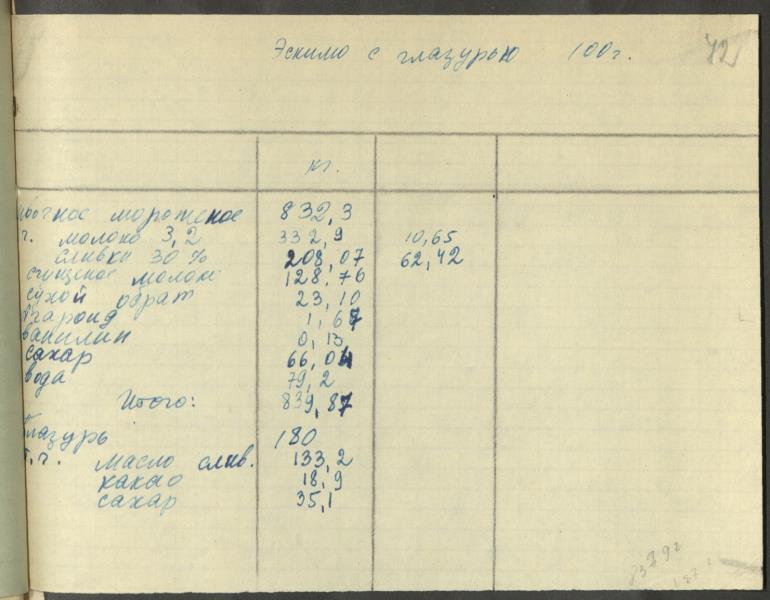 Эскимо с глазурью 100г. 42
кг.
мороженое 832,3
ч. молоко 3,2 332,9 10,65
сливки 30% 208,07 62,42
сгущеное молоко 128,76
сухой обрат 23,10
агароид 1,67
ванилин 0,13
сахар 66,04
вода 79,2
Итого: 839,87
глазурь 180
т.ч. масло слив. 133,2
какао 18,9
сахар 35,1